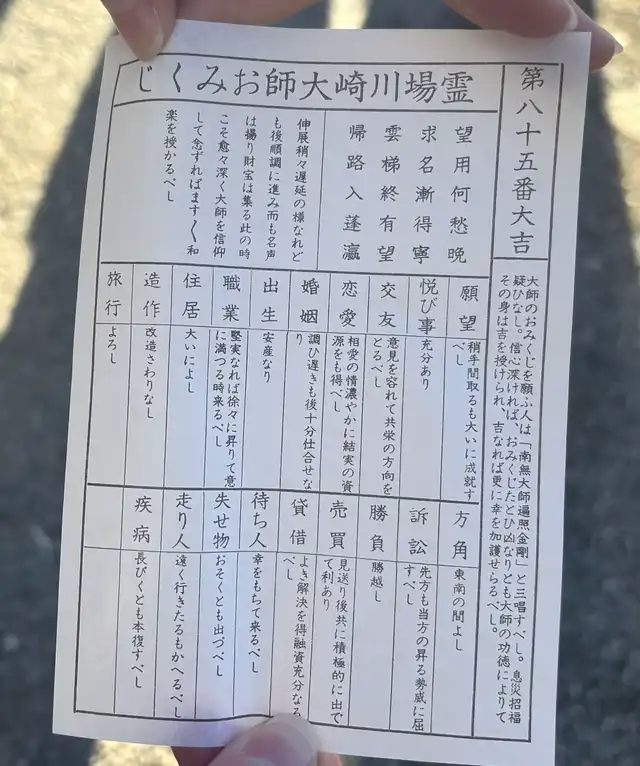 霊場川崎大師おみくじ
第八十五番大吉
大師のおみくじを願ふ人は「南無大師遍照金剛」と三唱すべし。息災招福
疑ひなし。信心深ければ、おみくじたとひ凶なりとも大師の功徳によりて
その身は吉を授けられ、吉なれば更に幸を加護せらるべし。
望用何愁晩
求名漸得寧
雲梯終有望
帰路入蓬瀛
伸展稍々遅延の様なれど
も後順調に進み而も名声
は揚り財宝は集る此の時
こそ愈々深く大師を信仰
して念ずればます〱和
楽を授かるべし
願望
稍手間取るも大いに成就す
べし
悦び事
充分あり
交友
意見を容れて共栄の方向を
とるべし
恋愛
相愛の情濃やかに結実の資
源をも得べし
婚姻
調ひ遅きも後十分仕合せな
り
出生
安産なり
職業
堅実なれば徐々に昇りて意
に満つる時来るべし
住居
大いによし
造作
改造さわりなし
旅行
よろし
方角
東南の間よし
訴訟
先方も当方の昇る勢威に屈
すべし
勝負
勝越し
売買
見送り後共に積極的に出で
て利あり
貸借
よき解決を得融資充分なる
べし
待ち人
幸をもちて来るべし
失せ物
おそくとも出づべし
走り人
遠く行きたるもかへるべし
疾病
長びくとも本復すべし